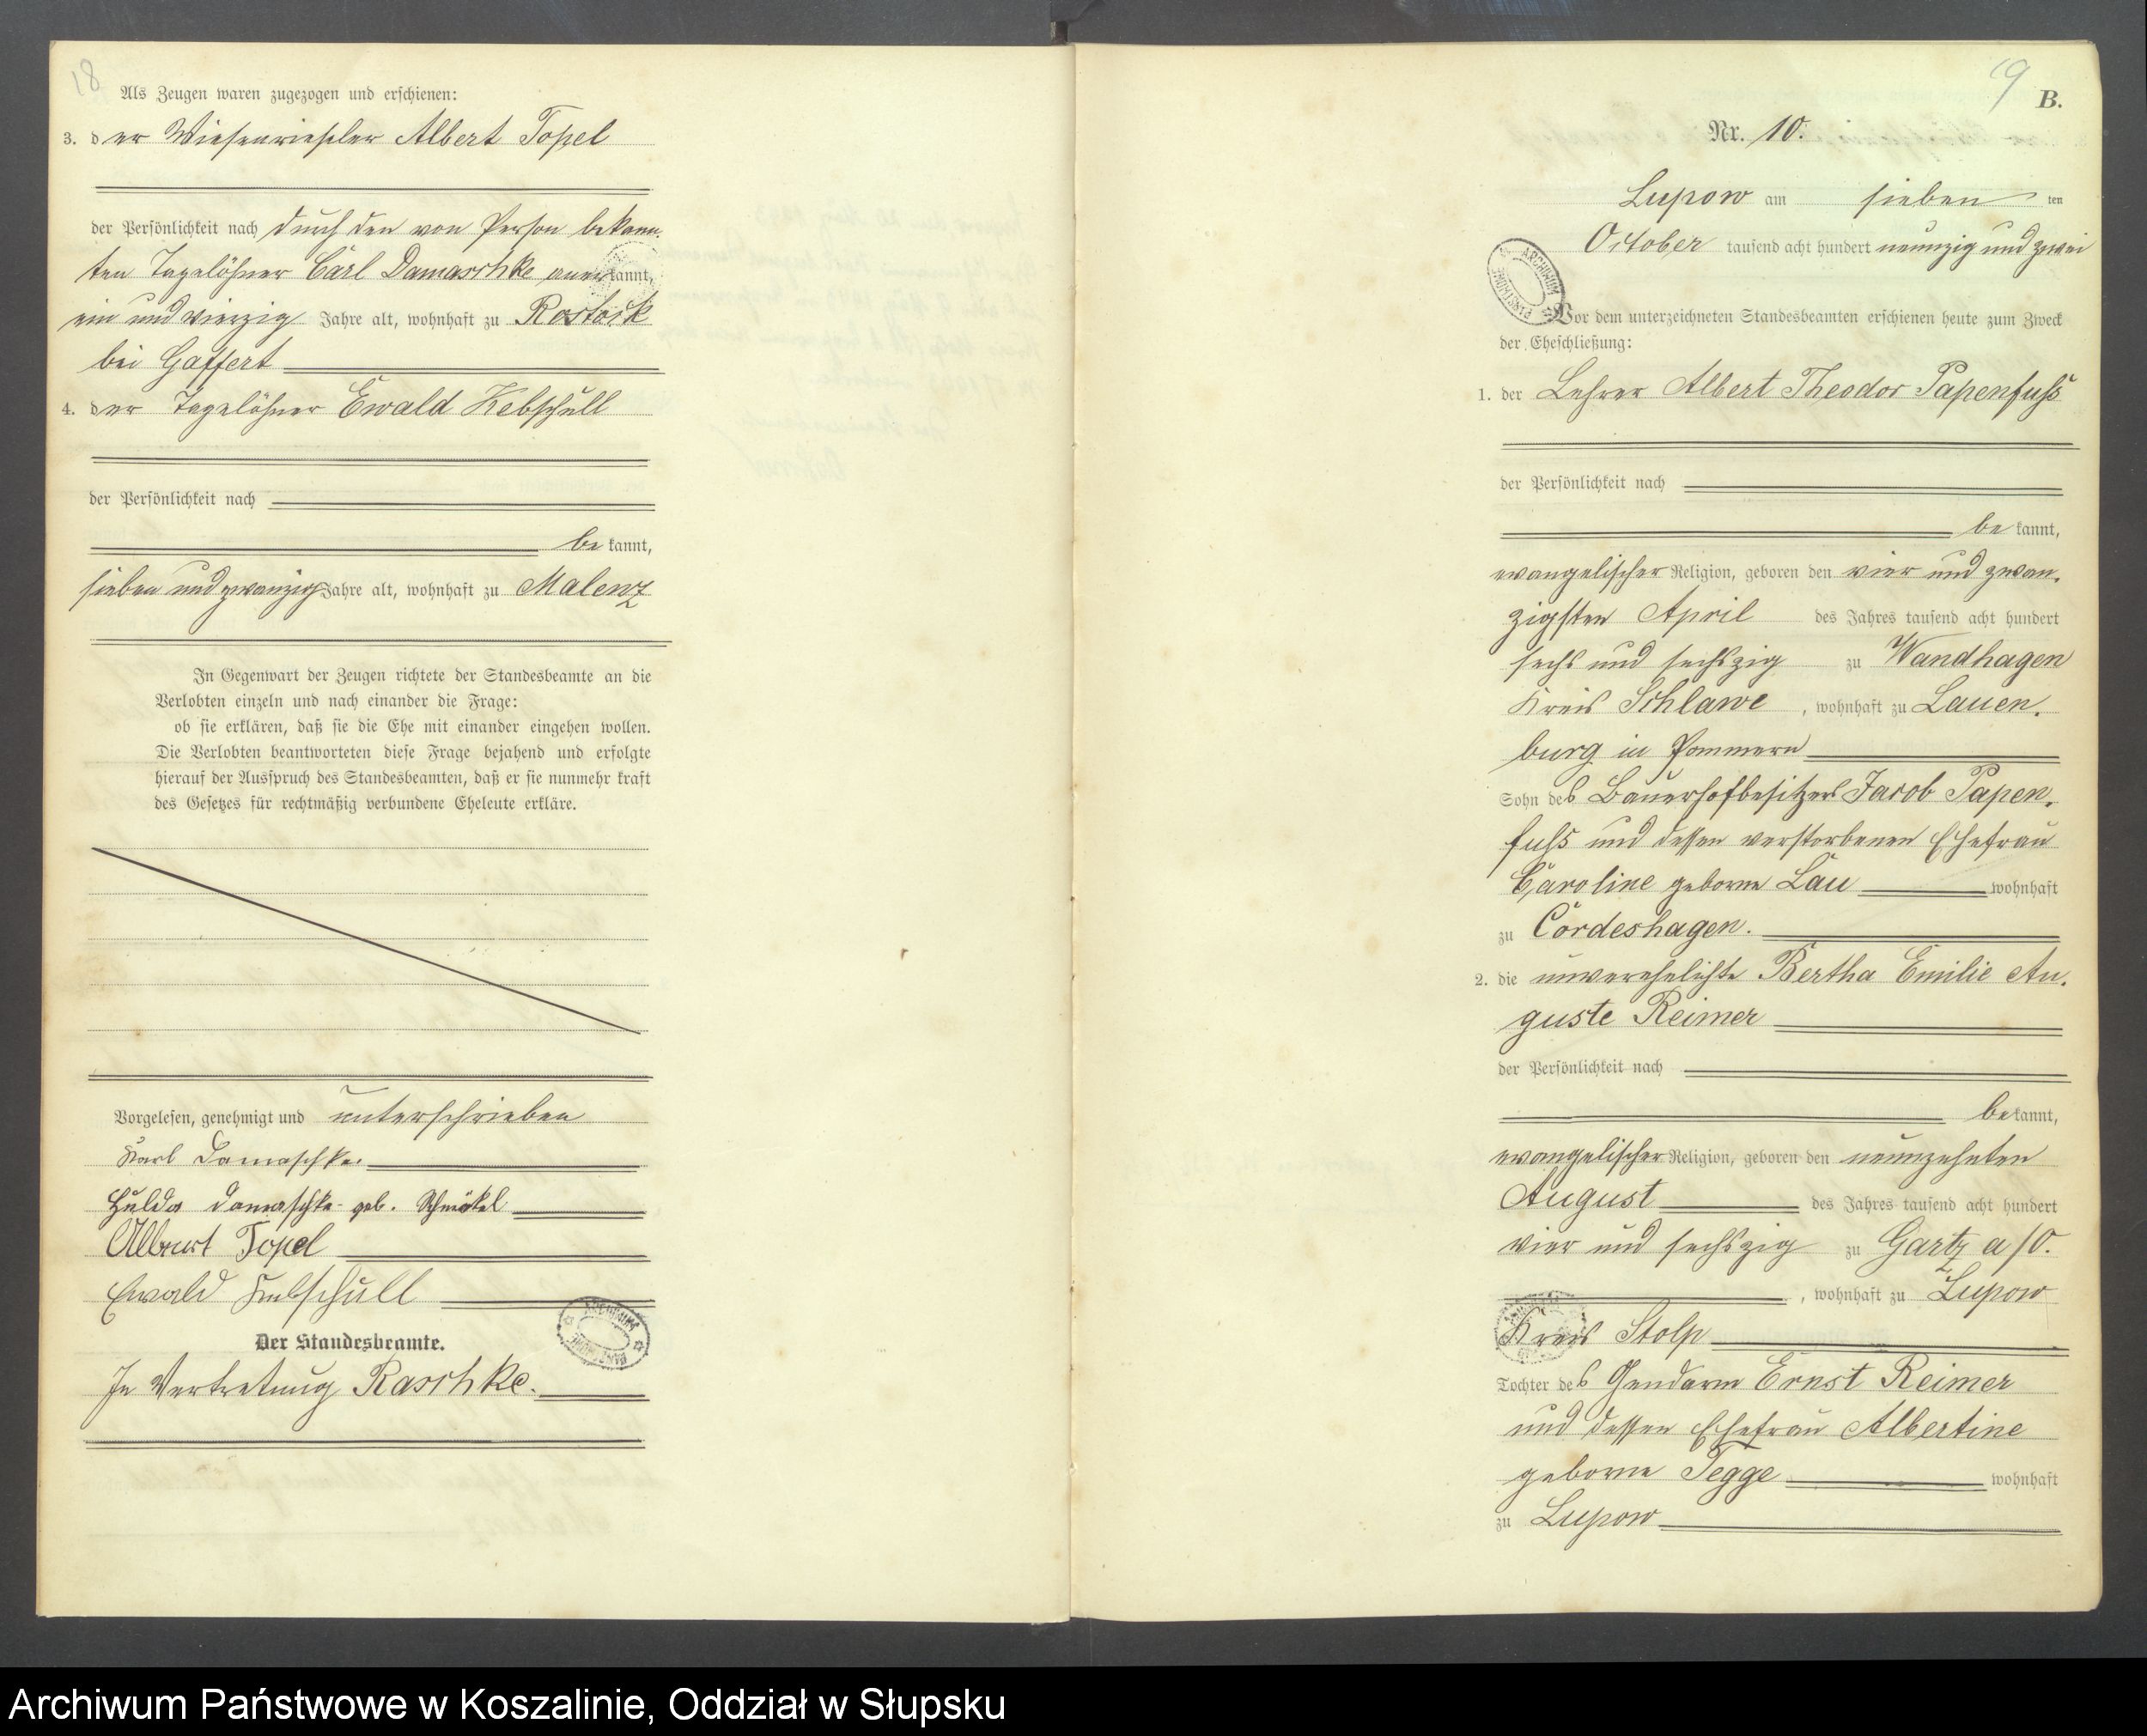 18
Als Zeugen waren zugezogen und erschienen:
3. der Wiesenriesler Albert Topel
der Persönlichkeit nach durch den von Person bekann-
ten Tagelöhner Carl Damaschke anerkannt,
ein und vierzig Jahre alt, wohnhaft zu Rostock
bei Gaffert
4. der Tagelöhner Ewald Kebschull
der Persönlichkeit nach
be kannt,
sieben und zwanzig Jahre alt, wohnhaft zu Malenz
In Gegenwart der Zeugen richtete der Standesbeamte an die
Verlobten einzeln und nach einander die Frage:
ob sie erklären, daß sie die Ehe mit einander eingehen wollen.
Die Verlobten beantworteten diese Frage bejahend und erfolgte
hierauf der Ausspruch des Standesbeamten, daß er sie nunmehr kraft
des Gesetzes für rechtmäßig verbundene Eheleute erkläre.
Vorgelesen, genehmigt und unterschrieben
Karl Damaschke.
Hulda Damaschke geb. Schmökel
Albert Topel
Ewald Kebschull
Der Standesbeamte.
In Vertretung Raschke.
19
B.
Nr. 10.
Lupow am sieben ten
October tausend acht hundert neunzig und zwei
Vor dem unterzeichneten Standesbeamten erschienen heute zum Zweck
der Eheschließung:
1. der Lehrer Albert Theodor Papenfuß
der Persönlichkeit nach
be kannt,
evangelischer Religion, geboren den vier und zwan-
zigsten April des Jahres tausend acht hundert
sechs und sechszig zu Wandhagen
Kreis Schlawe, wohnhaft zu Lauen-
burg in Pommern
Sohn des Bauerhofbesitzers Jacob Papen-
fuß und dessen verstorbenen Ehefrau
Caroline geborne Lau wohnhaft
zu Cördeshagen.
2. die unverehelichte Bertha Emilie Au-
guste Reimer
der Persönlichkeit nach
be kannt,
evangelischer Religion, geboren den neunzehnten
August des Jahres tausend acht hundert
vier und sechszig zu Gartz a/O.
, wohnhaft zu Lupow
Kreis Stolp
Tochter des Gendarm Ernst Reimer
und dessen Ehefrau Albertine
geborne Tegge wohnhaft
zu Lupow
Archiwum Państwowe w Koszalinie, Oddział w Słupsku